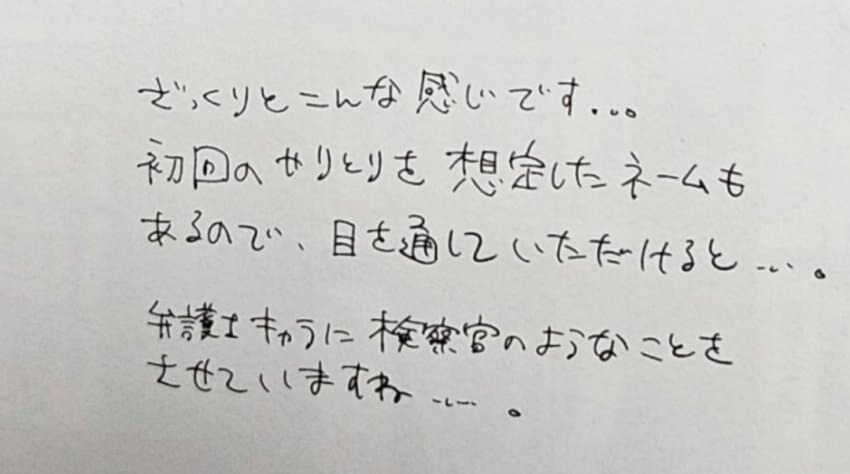 ざっくりとこんな感じです...
初回のやりとりを想定したネームも
あるので、目を通していただけると...。
弁護士キャラに検察官のようなことを
させていますね.....。